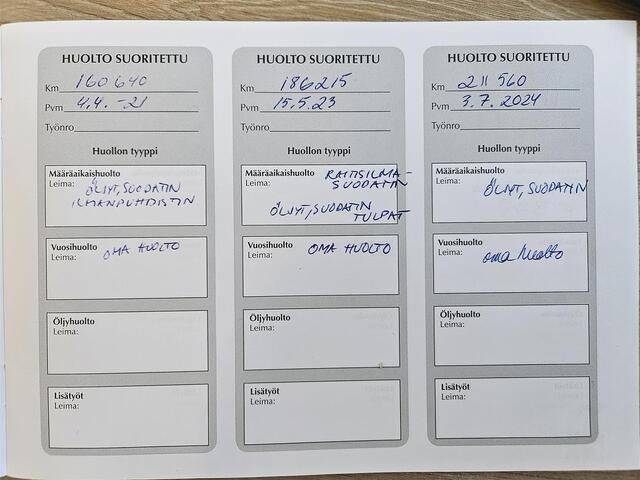 HUOLTO SUORITETTU
Km 160 640
Pvm 4.4. -21
Työnro
Huollon tyyppi
Määräaikaishuolto
Leima:
ÖLJYT, SUODATIN
ILMANPUHDISTIN
Vuosihuolto
Leima:
OMA HUOLTO
Öljyhuolto
Leima:
Lisätyöt
Leima:
HUOLTO SUORITETTU
Km 186215
Pvm 15.5.23
Työnro
Huollon tyyppi
Määräaikaishuolto
Leima:
RAITISILMA-
SUODATIN
ÖLJYT, SUODATIN
TULPAT
Vuosihuolto
Leima:
OMA HUOLTO
Öljyhuolto
Leima:
Lisätyöt
Leima:
HUOLTO SUORITETTU
Km 211 560
Pvm 3.7.2024
Työnro
Huollon tyyppi
Määräaikaishuolto
Leima:
ÖLJYT, SUODATIN
Vuosihuolto
Leima:
oma huolto
Öljyhuolto
Leima:
Lisätyöt
Leima: